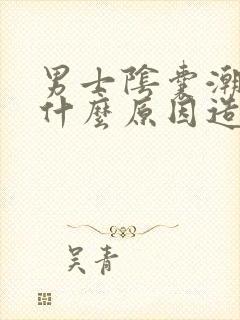 男士陰囊潮
什麼原因造
吴青